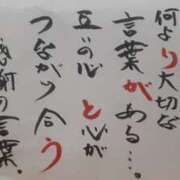 何より大切な
言葉がある…。
互いの心と心が
つながり合う
感謝の言葉。